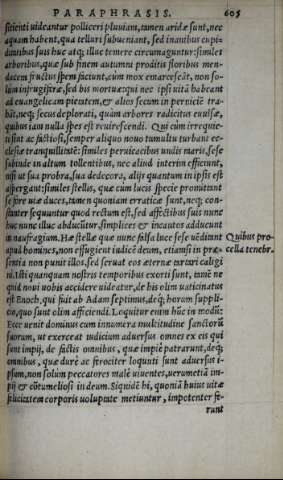 PARAPHRASIS. 605
sitienti uideantur polliceri pluuiam, tamen aridæ sunt, nec
aquam habent, qua telluri subueniant, sed inanibus cupi-
ditatibus suis huc atq; illuc temere circumaguntur: similes
arboribus, quæ sub finem autumni proditis floribus men-
dacem fructus spem faciunt, cùm mox emarcescãt, non so-
lùm infrugiferæ, sed bis mortuæ: qui nec ipsi uitã habeant
ad euangelicam pietatem, & alios secum in perniciē tra-
hãt, neq; secus deplorati, quàm arbores radicitus euulsæ,
quibus iam nulla spes est reuirescendi. Qui cùm irrequie-
ti sint ac factiosi, semper aliquo nouo tumultu turbant ec-
clesiæ tranquillitatē: similes peruicacibus undis maris, sese
subinde in altum tollentibus, nec aliud interim efficiunt,
nisi ut sua probra, sua dedecora, alijs quantum in ipsis est
aspergant: similes stellis, quæ cùm lucis specie promittant
se fore uiæ duces, tamen quoniam erraticæ sunt, neq; con-
stanter sequuntur quod rectum est, sed affectibus suis nunc
huc nunc illuc abducuntur, simplices & incautos adducunt
in naufragium. Hæ stellæ quæ nunc falsa luce sese uēditant
apud homines, non effugient iudicē deum, etiamsi in præ-
sentia non punit illos, sed seruat eos æternæ tartari caligi
ni. Isti quanquam nostris temporibus exorti sunt, tamē ne
quid noui uobis accidere uideatur, de his olim uaticinatus
est Enoch, qui fuit ab Adam septimus, deq; horum suppli-
cio, quo sunt olim afficiendi. Loquitur enim hūc in modū:
Ecce uenit dominus cum innumera multitudine sanctorū
suorum, ut exerceat iudicium aduersus omnes ex eis qui
sunt impij, de factis omnibus, quæ impiè patrarunt, deq;
omnibus, quæ durè ac ferociter loquuti sunt aduersus i-
psum, non solùm peccatores malè uiuentes, uerumetiã im-
pij & cōtumeliosi in deum. Siquidē hi, quoniã huius uitæ
felicitatem corporis uoluptate metiuntur, impotenter fe-
runt
Quibus pro-
cella tenebr.